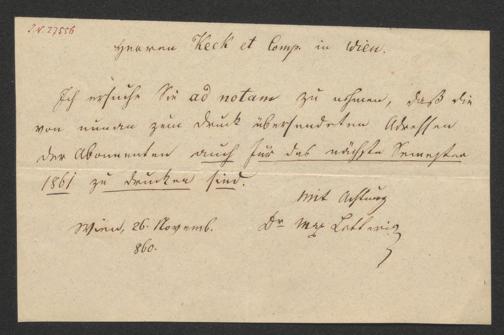 I.N. 27556
Herren Keck et Comp. in Wien.
Ich ersuche Sie ad notam zu nehmen, daß die
von nunan zum Druck übersendeten Adressen
der Abonnenten auch für das nächste Semester
1861 zu drucken sind.
Mit Achtung
Wien, 26. Novemb. Dr Max
860.